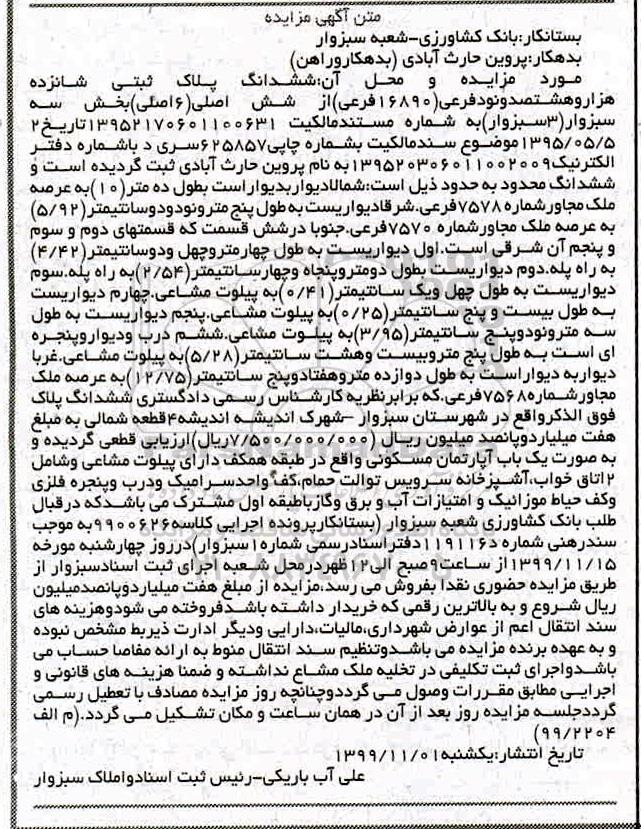 متن آگهی مزایده
بستانکار:بانک کشاورزی-شعبه سبزوار
بدهکار:پروین حارث آبادی (بدهکاروراهن)
مورد مزایده و محل آن:ششدانگ پلاک ثبتی شانزده
هزاروهشتصدونودفرعی(۱۶۸۹۰فرعی)از شش اصلی(۶اصلی)بخش سه
سبزوار(۳سبزوار)به شماره مستندمالکیت ۱۳۹۵۲۱۷۰۶۰۱۱۰۰۶۳۱تاریخ۲
۱۳۹۵/۰۵/۵موضوع سندمالکیت بشماره چاپی۶۲۵۸۵۷سری د باشماره دفتر
الکترنیک۱۳۹۵۲۰۳۰۶۰۱۱۰۰۲۰۰۹به نام پروین حارث آبادی ثبت گردیده است و
ششدانگ محدود به حدود ذیل است:شمالادیواربدیواراست بطول ده متر(۱۰)به عرصه
ملک مجاورشماره ۷۵۷۸فرعی.شرقادیواریست به طول پنج مترونودودوسانتیمتر(۵/۹۲)
به عرصه ملک مجاورشماره ۷۵۷۰فرعی.جنوبا درشش قسمت که قسمتهای دوم و سوم
و پنجم آن شرقی است.اول دیواریست به طول چهارمتروچهل ودوسانتیمتر(۴/۴۲)
به راه پله.دوم دیواریست بطول دومتروپنجاه وچهارسانتیمتر(۲/۵۴)به راه پله.سوم
دیواریست به طول چهل ویک سانتیمتر(۰/۴۱)به پیلوت مشاعی.چهارم دیواریست
به طول بیست و پنج سانتیمتر(۰/۲۵)به پیلوت مشاعی.پنجم دیواریست به طول
سه مترونودوپنج سانتیمتر(۳/۹۵)به پیلوت مشاعی.ششم درب ودیواروپنجره
ای است به طول پنج متروبیست وهشت سانتیمتر(۵/۲۸)به پیلوت مشاعی.غربا
دیواربه دیواراست به طول دوازده متروهفتادوپنج سانتیمتر(۱۲/۷۵)به عرصه ملک
مجاورشماره۷۵۶۸فرعی.که برابرنظریه کارشناس رسمی دادگستری ششدانگ پلاک
فوق الذکرواقع در شهرستان سبزوار -شهرک اندیشه اندیشه۴قطعه شمالی به مبلغ
هفت میلیاردوپانصد میلیون ریال (۷/۵۰۰/۰۰۰/۰۰۰ریال)ارزیابی قطعی گردیده و
به صورت یک باب آپارتمان مسکونی واقع در طبقه همکف دارای پیلوت مشاعی وشامل
۲اتاق خواب،آشپزخانه سرویس توالت حمام،کف واحدسرامیک ودرب وپنجره فلزی
وکف حیاط موزائیک و امتیازات آب و برق وگازباطبقه اول مشترک می باشدکه درقبال
طلب بانک کشاورزی شعبه سبزوار (بستانکارپرونده اجرایی کلاسه۹۹۰۰۶۲۶به موجب
سندرهنی شماره د۱۱۹۱۱۶دفتراسنادرسمی شماره۱سبزوار)درروز چهارشنبه مورخه
۱۳۹۹/۱۱/۱۵از ساعت۹صبح الی۱۲ظهردرمحل شعبه اجرای ثبت اسنادسبزوار از
طریق مزایده حضوری نقدا بفروش می رسد،مزایده از مبلغ هفت میلیاردوپانصدمیلیون
ریال شروع و به بالاترین رقمی که خریدار داشته باشدفروخته می شودوهزینه های
سند انتقال اعم از عوارض شهرداری،مالیات،دارایی ودیگر ادارت ذیربط مشخص نبوده
و به عهده برنده مزایده می باشدوتنظیم سند انتقال منوط به ارائه مفاصا حساب می
باشدواجرای ثبت تکلیفی در تخلیه ملک مشاع نداشته و ضمنا هزینه های قانونی و
اجرایی مطابق مقررات وصول می گرددوچنانچه روز مزایده مصادف با تعطیل رسمی
گرددجلسه مزایده روز بعد از آن در همان ساعت و مکان تشکیل می گردد.(م الف
۹۹/۲۲۰۴)
تاریخ انتشار:یکشنبه۱۳۹۹/۱۱/۰۱
علی آب باریکی-رئیس ثبت اسنادواملاک سبزوار